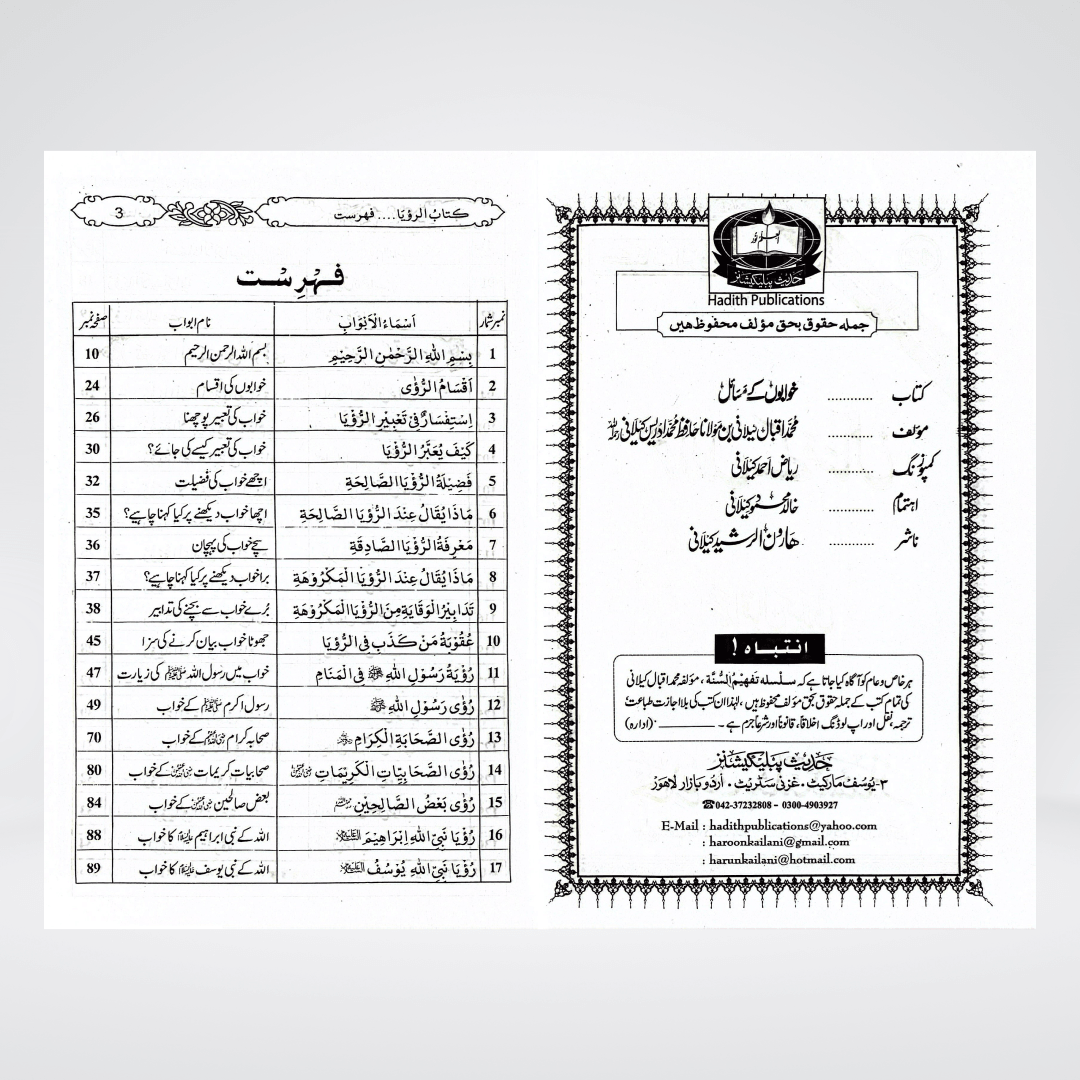 العلم نور
حدیث پبلیکیشنز
Hadith Publications
جملہ حقوق بحق مؤلف محفوظ ہیں
کتاب ............ خوابوں کے مسائل
مؤلف ............ محمد اقبال کیلانی بن مولانا حافظ محمد ادریس کیلانی رحمہ اللہ
کمپوزنگ ............ ریاض احمد کیلانی
اہتمام ............ خالد محمود کیلانی
ناشر ............ ھارون الرشید کیلانی
انتباہ !
ہر خاص و عام کو آگاہ کیا جاتا ہے کہ سلسلہ تفہیم السنۃ، مؤلفہ محمد اقبال کیلانی
کی تمام کتب کے جملہ حقوق بحق مؤلف محفوظ ہیں، لہٰذا ان کتب کی بلا اجازت طباعت،
ترجمہ، نقل اور اپ لوڈنگ اخلاقاً، قانوناً اور شرعاً جرم ہے۔ (ادارہ)
حدیث پبلیکیشنز
۳- یوسف مارکیٹ۔ غزنی سٹریٹ۔ اردو بازار لاہور
☎042-37232808 - 0300-4903927
E-Mail : hadithpublications@yahoo.com
: haroonkailani@gmail.com
: harunkailani@hotmail.com
کتاب الرؤیا.... فہرست 3
فہرست
نمبر شمار اَسْمَاءُ الْاَبْوَابِ نام ابواب صفحہ نمبر
1 بِسْمِ اللّٰهِ الرَّحْمٰنِ الرَّحِيْمِ بسم اللہ الرحمن الرحیم 10
2 اَقْسَامُ الرُّؤٰى خوابوں کی اقسام 24
3 اِسْتِفْسَارٌ فِى تَعْبِيْرِ الرُّؤْيَا خواب کی تعبیر پوچھنا 26
4 كَيْفَ يُعَبَّرُ الرُّؤْيَا خواب کی تعبیر کیسے کی جائے؟ 30
5 فَضِيْلَةُ الرُّؤْيَا الصَّالِحَةِ اچھے خواب کی فضیلت 32
6 مَاذَا يُقَالُ عِنْدَ الرُّؤْيَا الصَّالِحَةِ اچھا خواب دیکھنے پر کیا کہنا چاہیے؟ 35
7 مَعْرِفَةُ الرُّؤْيَا الصَّادِقَةِ سچے خواب کی پہچان 36
8 مَاذَا يُقَالُ عِنْدَ الرُّؤْيَا الْمَكْرُوْهَةِ برا خواب دیکھنے پر کیا کہنا چاہیے؟ 37
9 تَدَابِيْرُ الْوِقَايَةِ مِنَ الرُّؤْيَا الْمَكْرُوْهَةِ بُرے خواب سے بچنے کی تدابیر 38
10 عُقُوْبَةُ مَنْ كَذَبَ فِى الرُّؤْيَا جھوٹا خواب بیان کرنے کی سزا 45
11 رُؤْيَةُ رَسُوْلِ اللّٰهِ ﷺ فِى الْمَنَامِ خواب میں رسول اللہ ﷺ کی زیارت 47
12 رُؤٰى رَسُوْلِ اللّٰهِ ﷺ رسول اکرم ﷺ کے خواب 49
13 رُؤٰى الصَّحَابَةِ الْكِرَامِ صحابہ کرام کے خواب 70
14 رُؤٰى الصَّحَابِيَّاتِ الْكَرِيْمَاتِ صحابیات کریمات کے خواب 80
15 رُؤٰى بَعْضُ الصَّالِحِيْنَ بعض صالحین کے خواب 84
16 رُؤْيَا نَبِىِّ اللّٰهِ اِبْرَاهِيْمَ اللہ کے نبی ابراہیم کا خواب 88
17 رُؤْيَا نَبِىِّ اللّٰهِ يُوْسُفُ اللہ کے نبی یوسف کا خواب 89